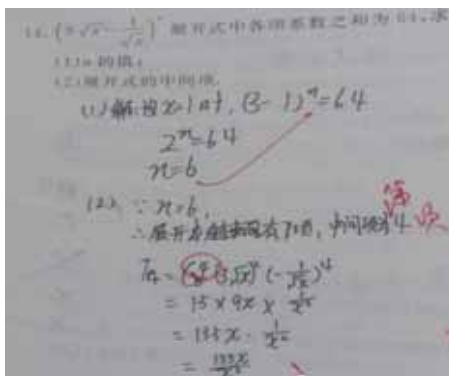 14. (3√x - 1/√x)ⁿ 展开式中各项系数之和为 64, 求
(1) n 的值;
(2) 展开式的中间项.
(1) 解: 设 x=1时, (3-1)ⁿ=64
2ⁿ=64
n=6
(2) ∵ n=6,
∴ 展开式 共有7项, 中间项为 第4项
T₄ = (3√x)² (-1/√x)⁴
= 15 × 9x ×
= 135x ·
= 135x